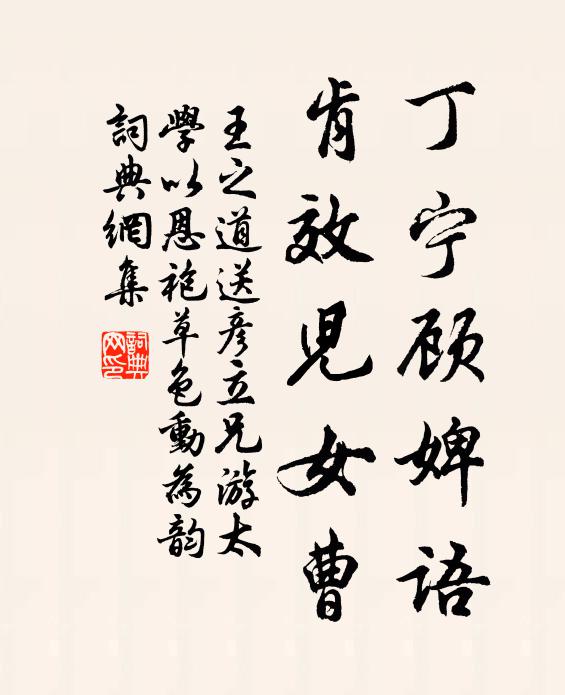 丁宁顾婢语
肯效児女曹
王之道送彦立兄游太
學以恩袍草色動為韵
詞典網集
詞典網印